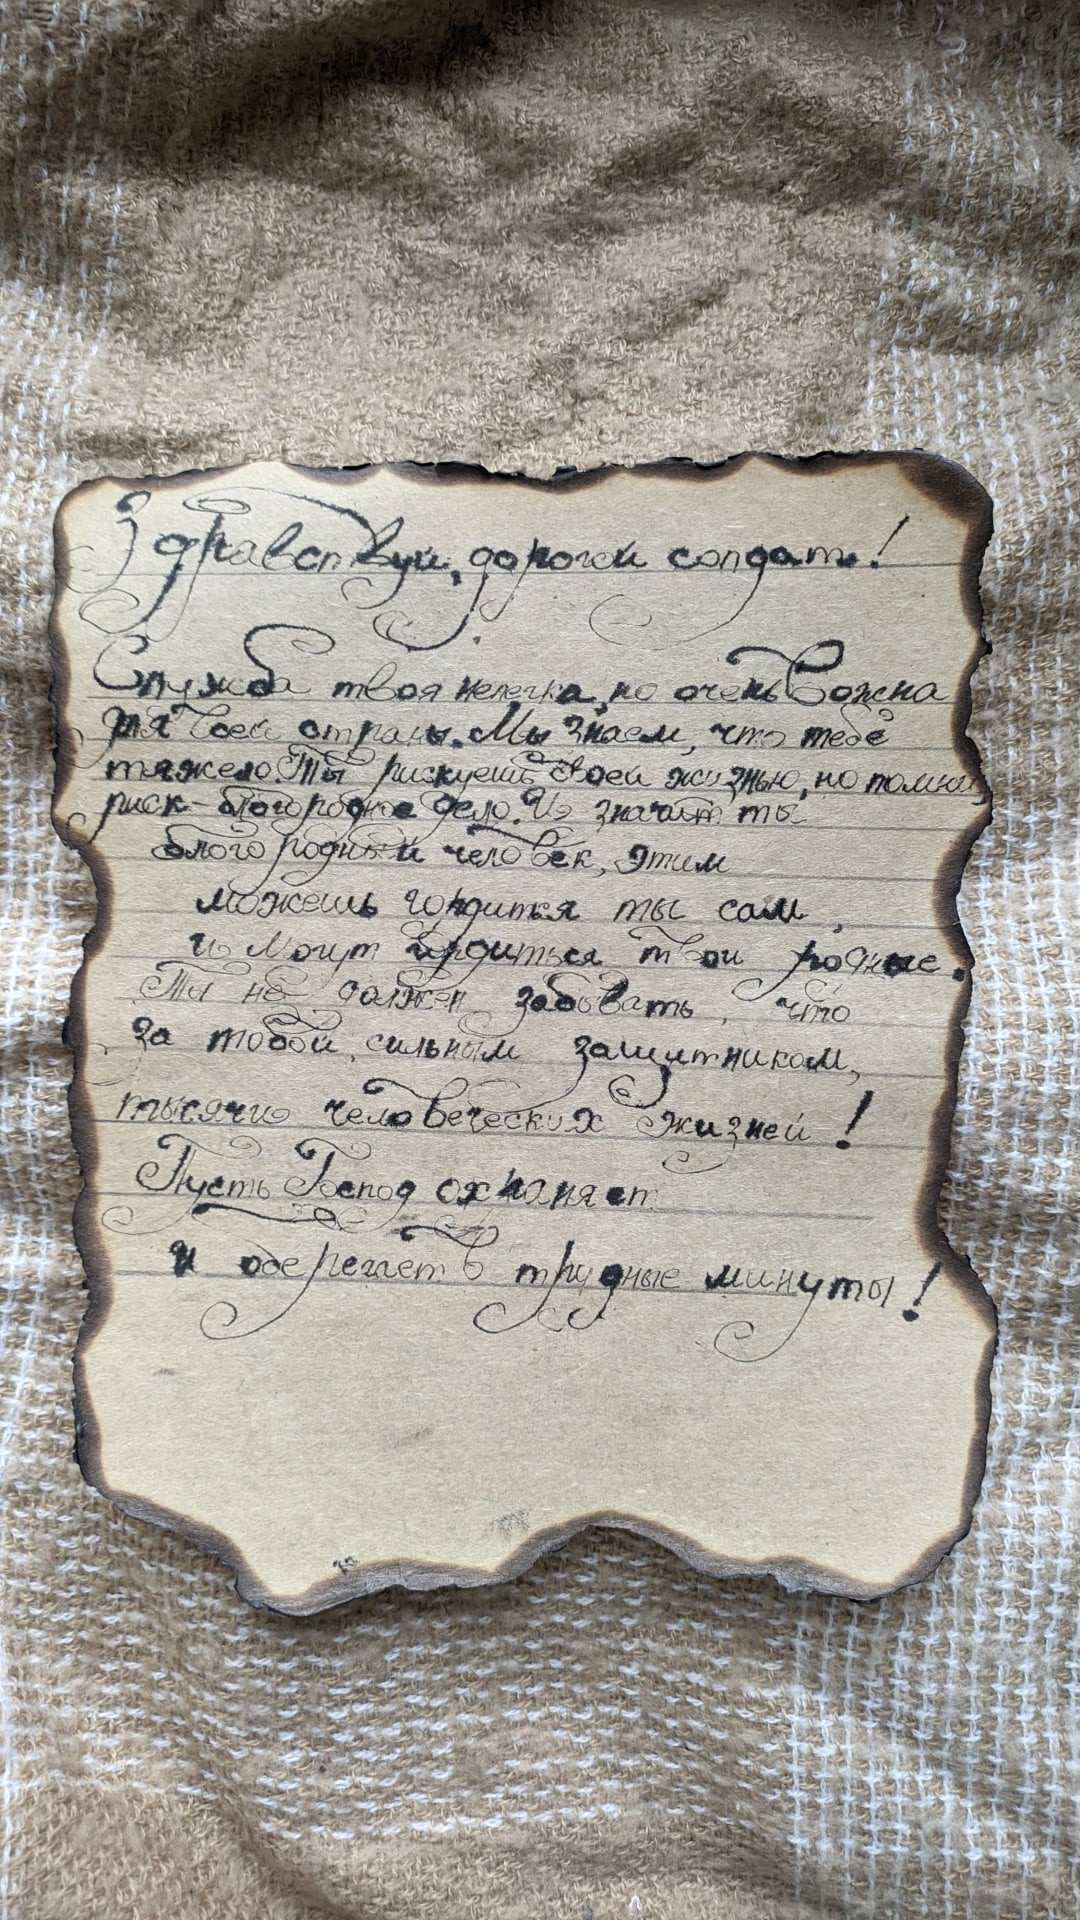 Здравствуй, дорогой солдат!
Служба твоя нелегка, но очень важна
для всей страны. Мы знаем, что тебе
тяжело. Ты рискуешь своей жизнью, но помни,
риск - благородное дело. И значит ты
благородный человек, этим
можешь гордиться ты сам,
и могут гордиться твои родные.
Ты не должен забывать, что
за тобой, сильным защитником,
тысячи человеческих жизней!
Пусть Господ охраняет
и оберегает в трудные минуты!